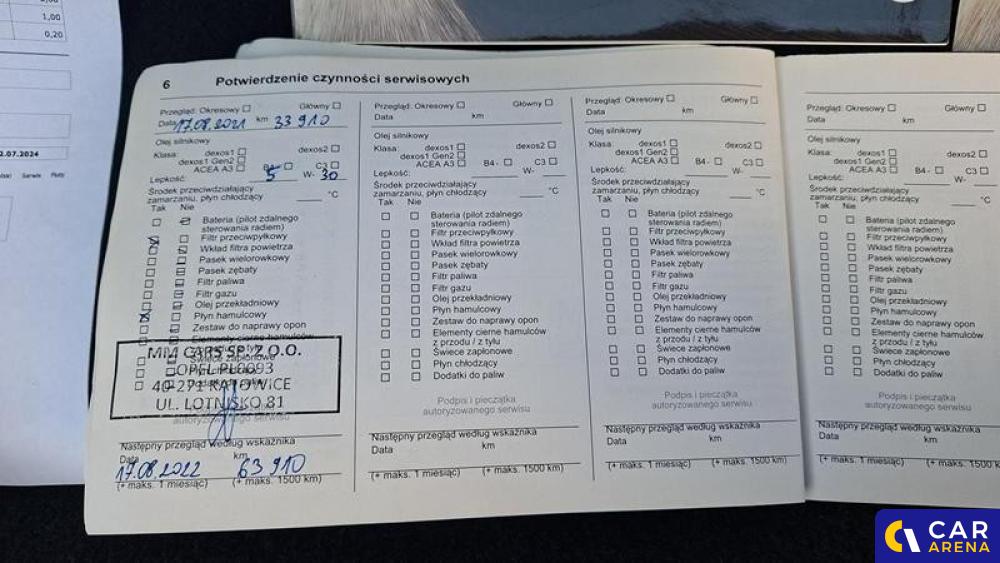 1,00
0,20
2.07.2024
Serwis
6 Potwierdzenie czynności serwisowych
Przegląd: Okresowy □ Główny □
Data 17.08.2021 km 33 910
Olej silnikowy
Klasa: dexos1 □ dexos2 □
dexos1 Gen2 □
ACEA A3 □ B4 - □ C3 □
Lepkość: 5 W- 30
Środek przeciwdziałający
zamarzaniu, płyn chłodzący °C
Tak Nie
Bateria (pilot zdalnego
sterowania radiem)
Filtr przeciwpyłkowy
Wkład filtra powietrza
Pasek wielorowkowy
Pasek zębaty
Filtr paliwa
Filtr gazu
Olej przekładniowy
Płyn hamulcowy
Zestaw do naprawy opon
Elementy cierne hamulców
MM CARS SP. Z O.O.
OPEL PL0093
40-271 KATOWICE
UL. LOTNISKO 81
autoryzowanego serwisu
Następny przegląd według wskaźnika
Data km
17.08.2022 63 910
(+ maks. 1 miesiąc) (+ maks. 1500 km)
Przegląd: Okresowy □ Główny □
Data km
Olej silnikowy
Klasa: dexos1 □ dexos2 □
dexos1 Gen2 □
ACEA A3 □ B4 - □ C3 □
Lepkość: W-
Środek przeciwdziałający
zamarzaniu, płyn chłodzący °C
Tak Nie
□ □ Bateria (pilot zdalnego
sterowania radiem)
□ □ Filtr przeciwpyłkowy
□ □ Wkład filtra powietrza
□ □ Pasek wielorowkowy
□ □ Pasek zębaty
□ □ Filtr paliwa
□ □ Filtr gazu
□ □ Olej przekładniowy
□ □ Płyn hamulcowy
□ □ Zestaw do naprawy opon
□ □ Elementy cierne hamulców
z przodu / z tyłu
□ □ Świece zapłonowe
□ □ Płyn chłodzący
□ □ Dodatki do paliw
Podpis i pieczątka
autoryzowanego serwisu
Następny przegląd według wskaźnika
Data km
(+ maks. 1 miesiąc) (+ maks. 1500 km)
Przegląd: Okresowy □ Główny □
Data km
Olej silnikowy
Klasa: dexos1 □ dexos2 □
dexos1 Gen2 □
ACEA A3 □ B4 - □ C3 □
Lepkość: W-
Środek przeciwdziałający
zamarzaniu, płyn chłodzący °C
Tak Nie
□ □ Bateria (pilot zdalnego
sterowania radiem)
□ □ Filtr przeciwpyłkowy
□ □ Wkład filtra powietrza
□ □ Pasek wielorowkowy
□ □ Pasek zębaty
□ □ Filtr paliwa
□ □ Filtr gazu
□ □ Olej przekładniowy
□ □ Płyn hamulcowy
□ □ Zestaw do naprawy opon
□ □ Elementy cierne hamulców
z przodu / z tyłu
□ □ Świece zapłonowe
□ □ Płyn chłodzący
□ □ Dodatki do paliw
Podpis i pieczątka
autoryzowanego serwisu
Następny przegląd według wskaźnika
Data km
(+ maks. 1 miesiąc) (+ maks. 1500 km)
Przegląd: Okresowy □ Główny □
Data km
Olej silnikowy
Klasa: dexos1 □ dexos2 □
dexos1 Gen2 □
ACEA A3 □ B4 - □ C3 □
Lepkość: W-
Środek przeciwdziałający
zamarzaniu, płyn chłodzący
Tak Nie
□ □ Bateria (pilot zdalnego
sterowania radiem)
□ □ Filtr przeciwpyłkowy
□ □ Wkład filtra powietrza
□ □ Pasek wielorowkowy
□ □ Pasek zębaty
□ □ Filtr paliwa
□ □ Filtr gazu
□ □ Olej przekładniowy
□ □ Płyn hamulcowy
□ □ Zestaw do naprawy opon
□ □ Elementy cierne hamulców
z przodu / z tyłu
□ □ Świece zapłonowe
□ □ Płyn chłodzący
□ □ Dodatki do paliw
Podpis i pieczątka
autoryzowanego serwisu
Następny przegląd według wskaźnika
Data km
(+ maks. 1 miesiąc) (+ maks. 1500
CAR
ARENA